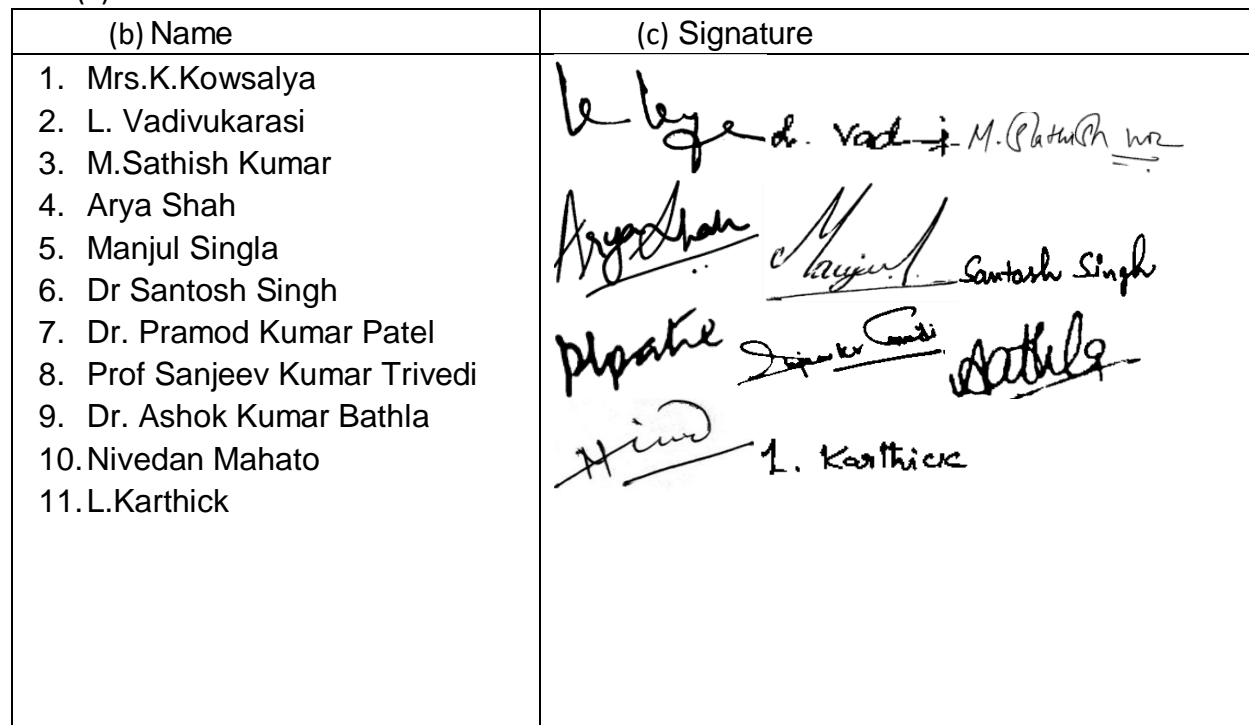 (b) Name
(c) Signature
1. Mrs.K.Kowsalya
2. L. Vadivukarasi
3. M.Sathish Kumar
4. Arya Shah
5. Manjul Singla
6. Dr Santosh Singh
7. Dr. Pramod Kumar Patel
8. Prof Sanjeev Kumar Trivedi
9. Dr. Ashok Kumar Bathla
10. Nivedan Mahato
11. L.Karthick
M.
Arya Shah
Santosh Singh
Bathla
L. Karthick